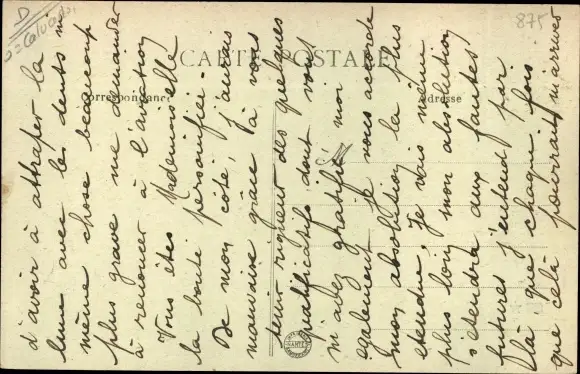 D
Calvados
875
CARTE POSTALE
Correspondance
Adresse
d'avoir à attraper la
lune avec les dents ou
même chose beaucoup
plus grave me demander
à renoncer à l'aviation
Vous êtes Mademoiselle
la bonté personnifiée.
De mon côté, j'aurais
mauvaise grâce à vous
tenir rigueur des quelques
qualificatifs dont vous
m'avez gratifié, moi
également je vous accorde
mon absolution la plus
étendue. Je vais même
plus loin, mon absolution
s'étendra aux fautes
futures j'entend par
là que chaque fois
que celà pourrait m'arriver